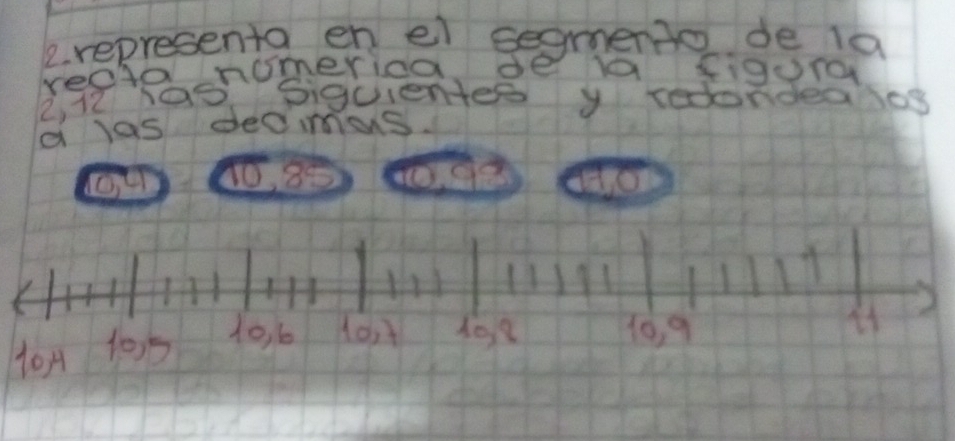 2. representa en el segmento de la
recta númerica de la figura
2,12 las siguientes y redondea los
a las decimas.
10,4 10,85 10,93 11,0
10,4 10,5 10,6 10,7 10,8 10,9 11